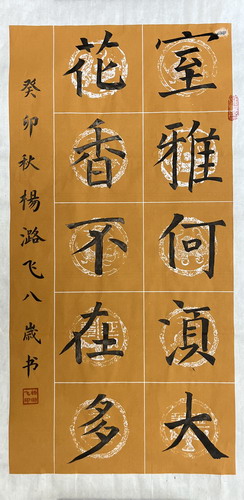 室雅何湏大
花香不在多
癸卯秋杨潞飞八岁书